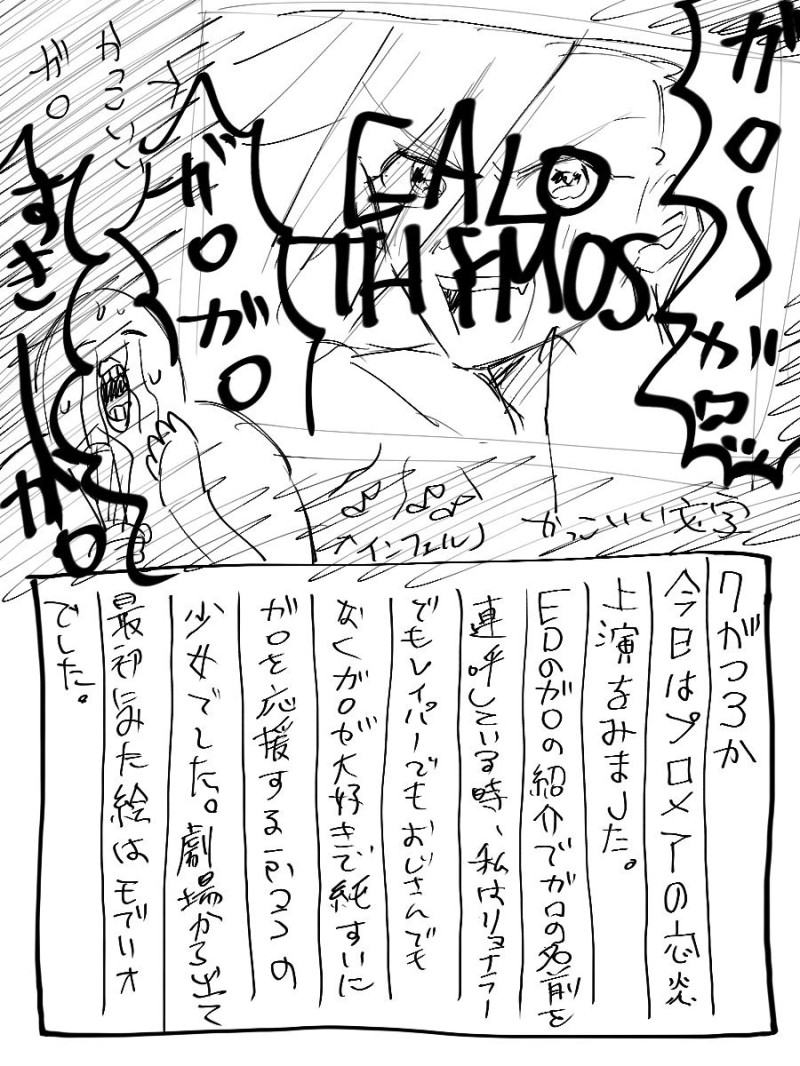 ガロ〜
ガロッ
GALO
THYMOS
ガロガロ
かっこいい
ガロ
すき
ガロ
インフェルノ
かっこいい文字
7がつ3か
今日はプロメアの応炎
上演をみました。
EDのガロの紹介でガロの名前を
連呼している時、私はリョナラー
でもレイパーでもおじさんでも
なくガロが大好きで純すいに
ガロを応援する一人の
少女でした。劇場から出て
最初にみた絵はモブレイオ
でした。